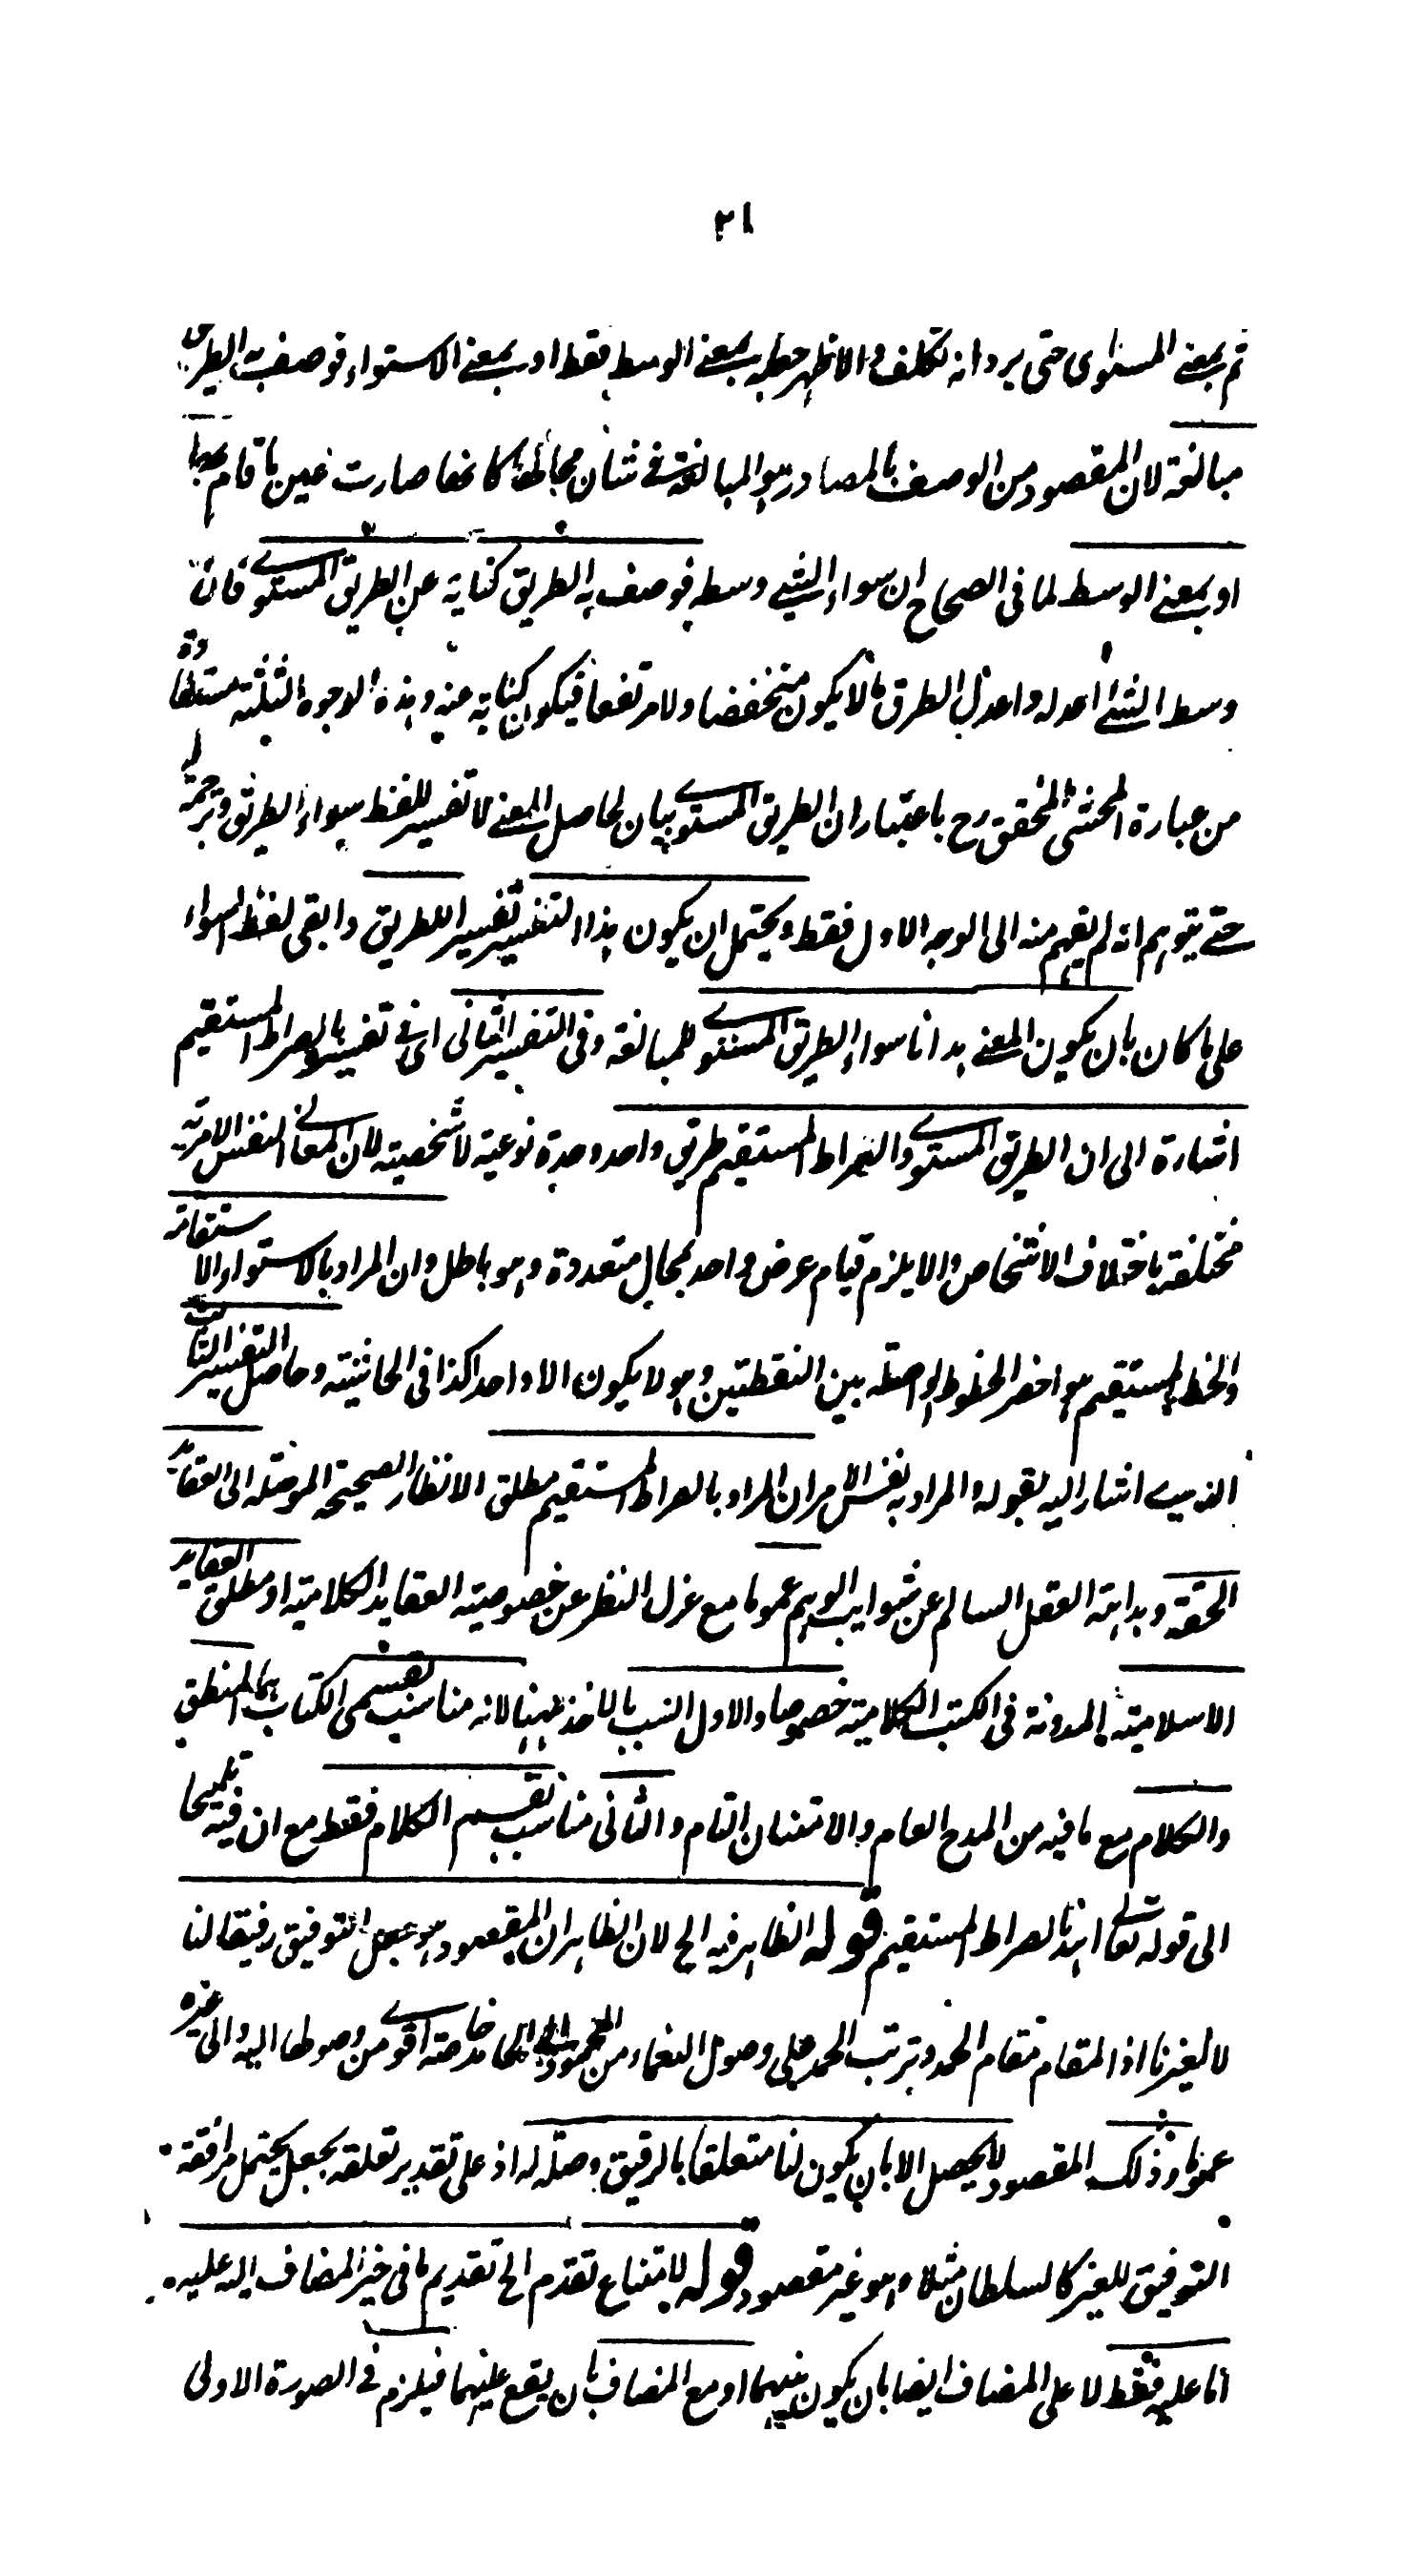 ٢١
ثم بمعنى المستوى حتى يرد انه تكلف والاظهر جعله بمعنى الوسط فقط او بمعنى الاستواء فوصف به الطريق
مبالغة لان المقصود من الوصف بالمصادر هو المبالغة فى شان محالها كانها صارت عين ما قام بها
او بمعنى الوسط لما فى الصحاح ان سواء الشئ وسطه فوصف به الطريق كناية عن الطريق المستوى فان
وسط الشئ اعدله واعدل الطرق ما لا يكون منخفضا ولا مرتفعا فيكون كناية عنه وهذه الوجوه الثلثة مستفادة
من عبارة المحشى المحقق رح باعتبار ان الطريق المستوى بيان لحاصل المعنى لا تفسير للفظ سواء الطريق وترجمة له
حتى يتوهم انه لم يفهم منه الى الوجه الاول فقط ويحتمل ان يكون هذا التفسير تفسيرا للطريق وابقى لفظ السواء
على ما كان بان يكون المعنى هدانا سواء الطريق المستوى للمبالغة وفى التفسير الثانى اى فى تفسيره بالصراط المستقيم
اشارة الى ان الطريق المستوى والصراط المستقيم طريق واحد وحدة نوعية لا شخصية لان المعانى النفس الامرية
مختلفة باختلاف الاشخاص والا يلزم قيام عرض واحد بمحال متعددة وهو باطل وان المراد بالاستواء والاستقامة
والخط المستقيم هو اخصر الخطوط الواصلة بين النقطتين وهو لا يكون الا واحدا كذا فى الحاشية وحاصل التفسير الثانى
الذى اشار اليه بقوله والمراد به نفس الامر ان المراد بالصراط المستقيم مطلق الانظار الصحيحة الموصلة الى العقايد
الحقة وبداهة العقل السالم عن شوايب الوهم عموما مع عزل النظر عن خصوصية العقايد الكلامية او مطلق العقايد
الاسلامية المدونة فى الكتب الكلامية خصوصا والاول انسب بالاخذ ههنا لانه مناسب بقسمى الكتاب هما المنطق
والكلام مع ما فيه من المدح العام والامتنان التام والثانى مناسب بقسم الكلام فقط مع ان فيه تلميحا
الى قوله تعالى اهدنا الصراط المستقيم قوله الظاهر فيه الخ لان الظاهر ان المقصود هو جعل التوفيق رفيقا لنا
لا لغيرنا اذ المقام مقام الحمد وترتب الحمد على وصول النعماء من المحمود الى الحامد خاصة اقوى من وصولها اليه والى غيره
عموما وذلك المقصود لا يحصل الا بان يكون لنا متعلقا بالرفيق وصلة له اذ على تقدير تعلقه بجعل يحتمل مرافقة
التوفيق للغير كالسلطان مثلا وهو غير مقصود قوله لامتناع تقدم الخ تقديم ما فى حيز المضاف اليه عليه
اما عليه فقط لا على المضاف ايضا بان يكون بينهما او مع المضاف بان يقع عليهما فيلزم فى الصورة الاولى